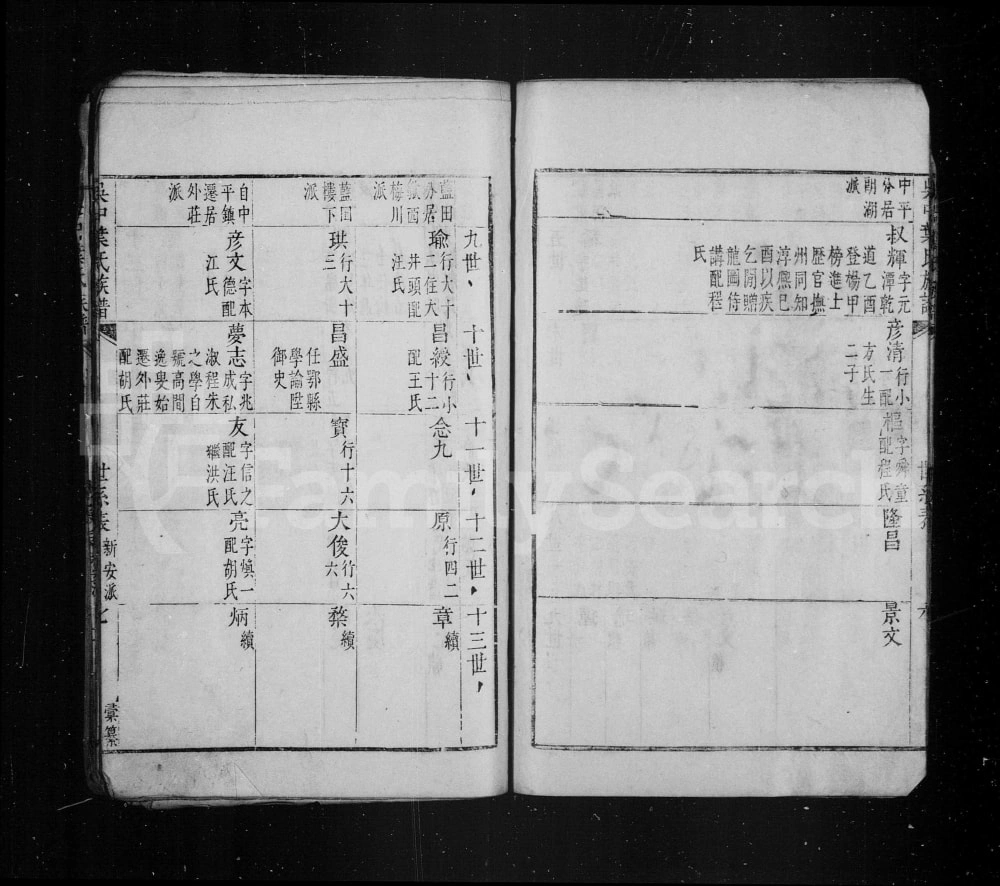 中平
分居
朝湖
派
叔輝
字元
潭乾
道乙酉
登楊甲
榜進士
歷官撫
州同知
淳熙巳
酉以疾
乞閒贈
龍圖侍
講配程
氏
彥清
行小
一配
方氏生
二子
樞
字舜童
配程氏
隆昌
景文
九世、
十世、
十一世、
十二世、
十三世、
藍田
分居
派
梅川
瑜
行大十
二在大
井頭配
汪氏
昌綬
行小
十二
配王氏
念九
原
行四二
章
續
藍田
樓下
派
珙
行大十
三
昌盛
任鄂縣
學諭陞
御史
寶
行十六
大俊
行六
六
棻
續
自中
平鎮
遷居
外莊
派
彥文
字本
德配
江氏
夢志
字兆
成私
淑程朱
之學自
號高閒
逸叟始
遷外莊
配胡氏
友
字信之
配汪氏
繼洪氏
亮
字慎一
配胡氏
炳
續
吳中葉氏族譜
世系表
新安派
七
彙纂
FamilySearch